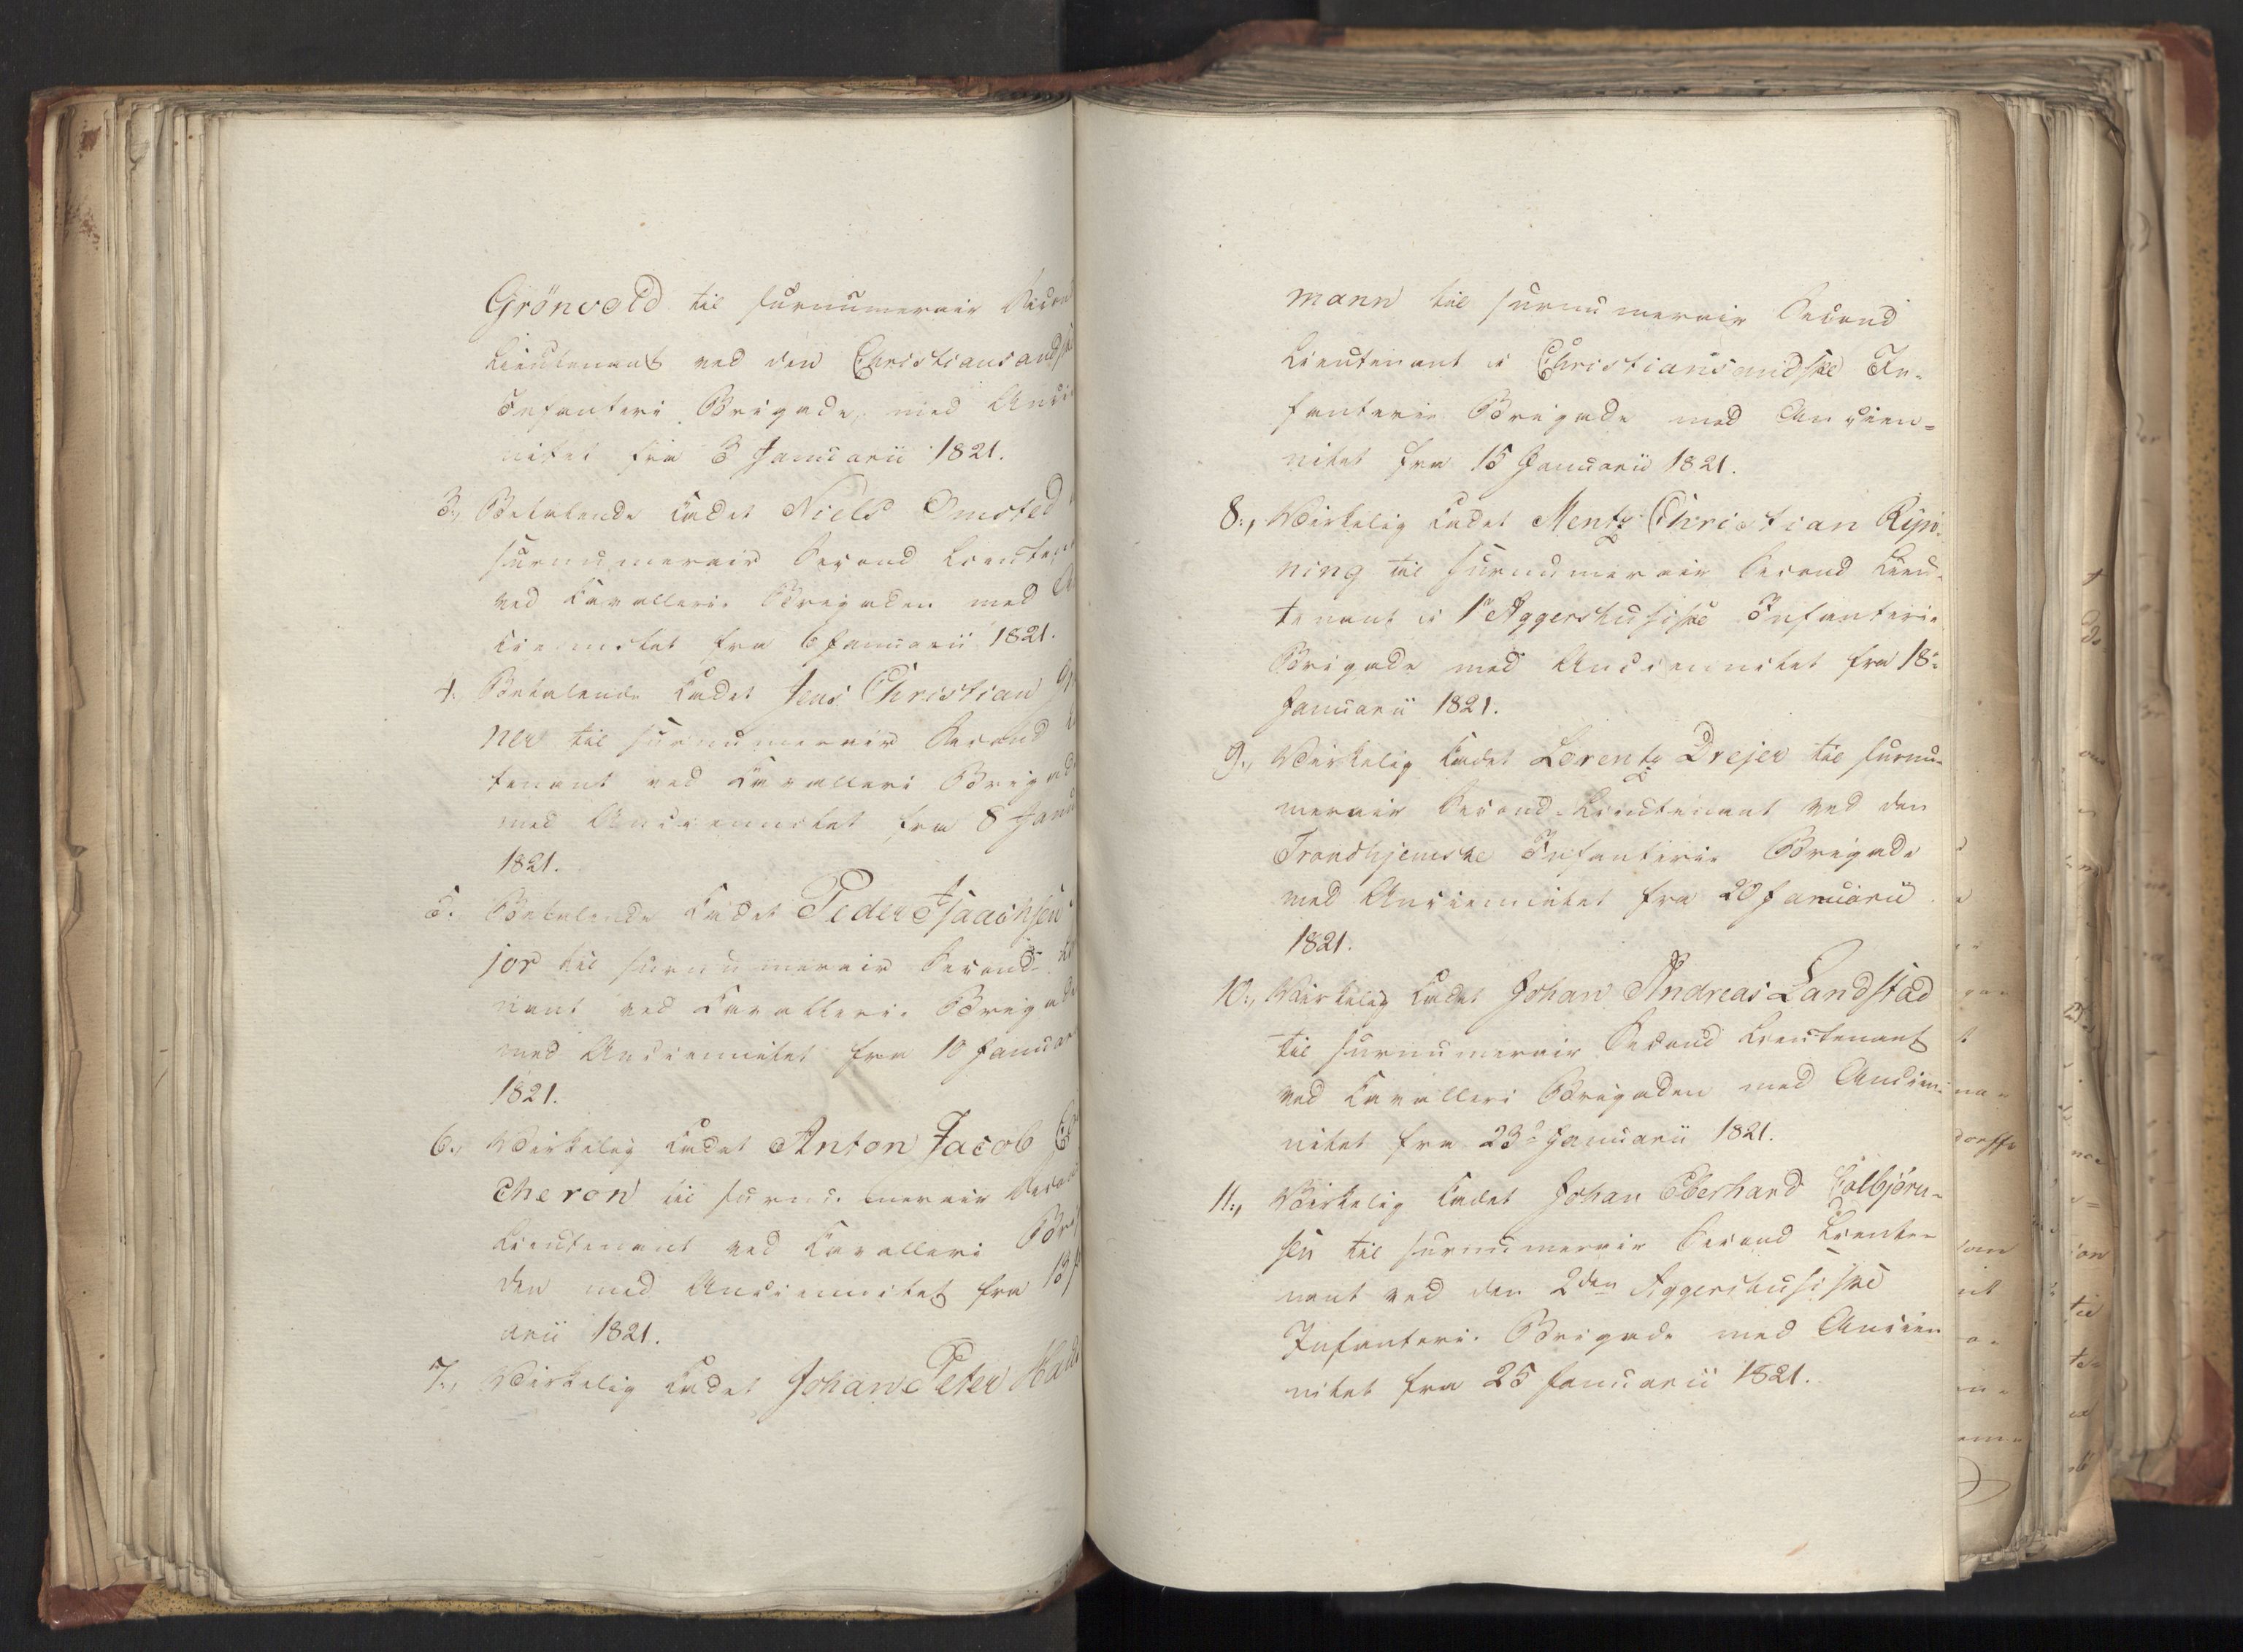 Grönvold til surnumerair Secon
Lieutenant ved den Christiansandsk
Infanteri Brigade, med Anci
nitet fra 3 Januarii 1821.
3., Betalende Cadet Niels Omsted
surnumerair Second Lieuten
ved Cavalleri Brigaden med A
ciennitet fra 6 Januarii 1821.
4. Betalende Cadet Jens Christian
ner til surnumerair Second
tenant ved Cavalleri Brigad
med Anciennitet fra 8 Janu
1821.
5. Betalende Cadet Peder Isaachsen
jor til surnumerair Second
nant ved Cavalleri Brigade
med Anciennitet fra 10 Januar
1821.
6., Virkelig Cadet Anton Jacob
cheron til surnumerair Secon
Lieutenant ved Cavalleri Bri
den med Anciennitet fra 13
arii 1821.
7., Virkelig Cadet Johan Peter
mann til surnumerair Second
Lieutenant i Christiansandske In-
fanterie Brigade med Ancien-
nitet fra 15 Januarii 1821.
8., Virkelig Cadet Mentz Christian Ryn-
ning til surnumerair Second Lieu-
tenant i 1e Aggershusiske Infanteri
Brigade med Anciennitet fra 18
Januarii 1821.
9., Virkelig Cadet Lorentz Drejer til surnu-
merair Second Lieutenant ved den
Trondhjemske Infanterie Brigade
med Anciennitet fra 20 Januarii
1821.
10., Virkelig Cadet Johan Andreas Landstad
til surnumerair Second Lieutenant
ved Cavalleri Brigaden med Ancien-
nitet fra 23 Januarii 1821.
11., Virkelig Cadet Johan Eberhard Colbjørn-
sen til surnumerair Second Lieute-
nant ved den 2den Aggershusiske
Infanteri Brigade med Ancien
nitet fra 25 Januarii 1821.